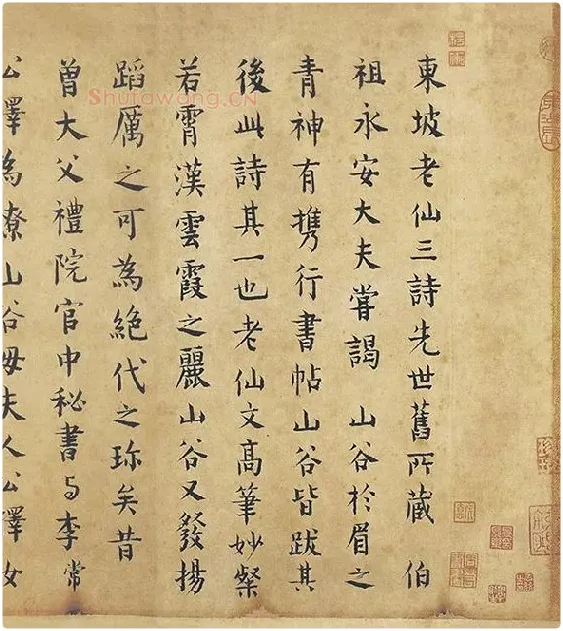 東坡老仙三詩先世舊所藏 伯
祖永安大夫嘗謁 山谷於眉之
青神有携行書帖山谷皆跋其
後此詩其一也老仙文高筆妙粲
若霄漢雲霞之麗山谷又發揚
蹈厲之可為絕代之珎矣昔
曾大父禮院官中秘書与李常
公擇為寮山谷母夫人公擇女
Shufawang.CN